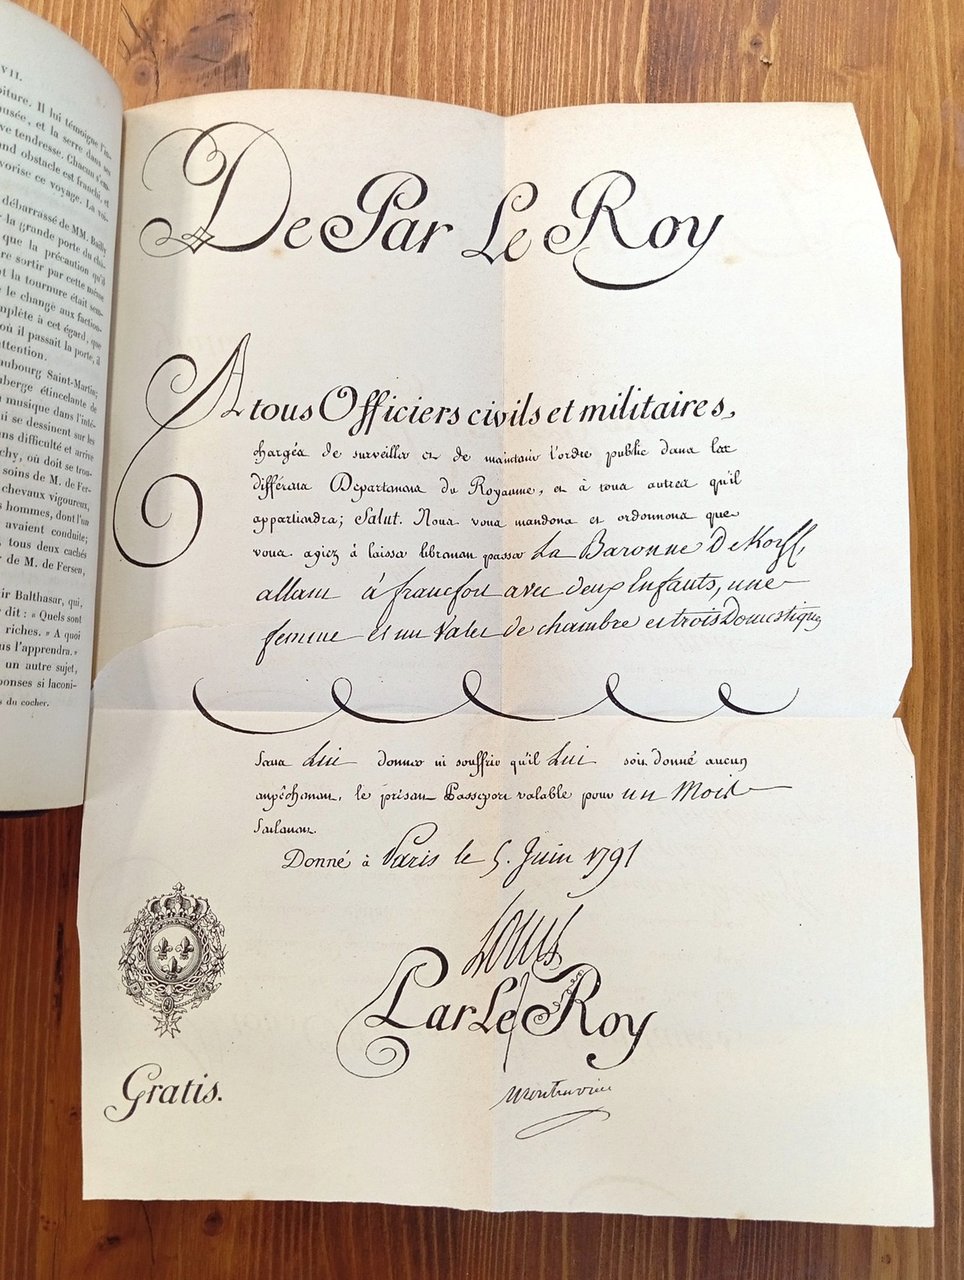 VII.
oiture. Il lui témoigne l'in-
usée, et la serre dans ses
ve tendresse. Chacun s'em-
nd obstacle est franchi, et
vorise ce voyage. La voi-
débarrassé de MM. Bailly
la grande porte du châ-
que la précaution qu'il
re sortir par cette même
t la tournure était sem-
le change aux faction-
mplète à cet égard, que
où il passait la porte, il
ttention.
aubourg Saint-Martin;
uberge étincelante de
musique dans l'inté-
ui se dessinent sur les
ans difficulté et arrive
chy, où doit se trou-
soins de M. de Fer-
chevaux vigoureux,
s hommes, dont l'un
avaient conduite;
tous deux cachés
de M. de Fersen,
ir Balthasar, qui,
dit : « Quels sont
riches. » A quoi
us l'apprendra.»
un autre sujet,
ponses si laconi-
s du cocher.
De Par Le Roy
A tous Officiers civils et militaires,
chargés de surveiller et de maintenir l'ordre public dans les
différens Départemens du Royaume, et à tous autres qu'il
appartiendra; Salut. Nous vous mandons et ordonnons que
vous ayiez à laisser librement passer La Baronne De Korff,
allant à francfort avec deux Enfants, une
femme et un Valet de chambre et trois Domestiques
Sans Lui donner ni souffrir qu'il Lui soit donné aucun
empêchement, le présent Passeport valable pour un Mois
Seulement.
Donné à Paris le 5. Juin 1791
Louis
Par Le Roy
Montmorin
Gratis.